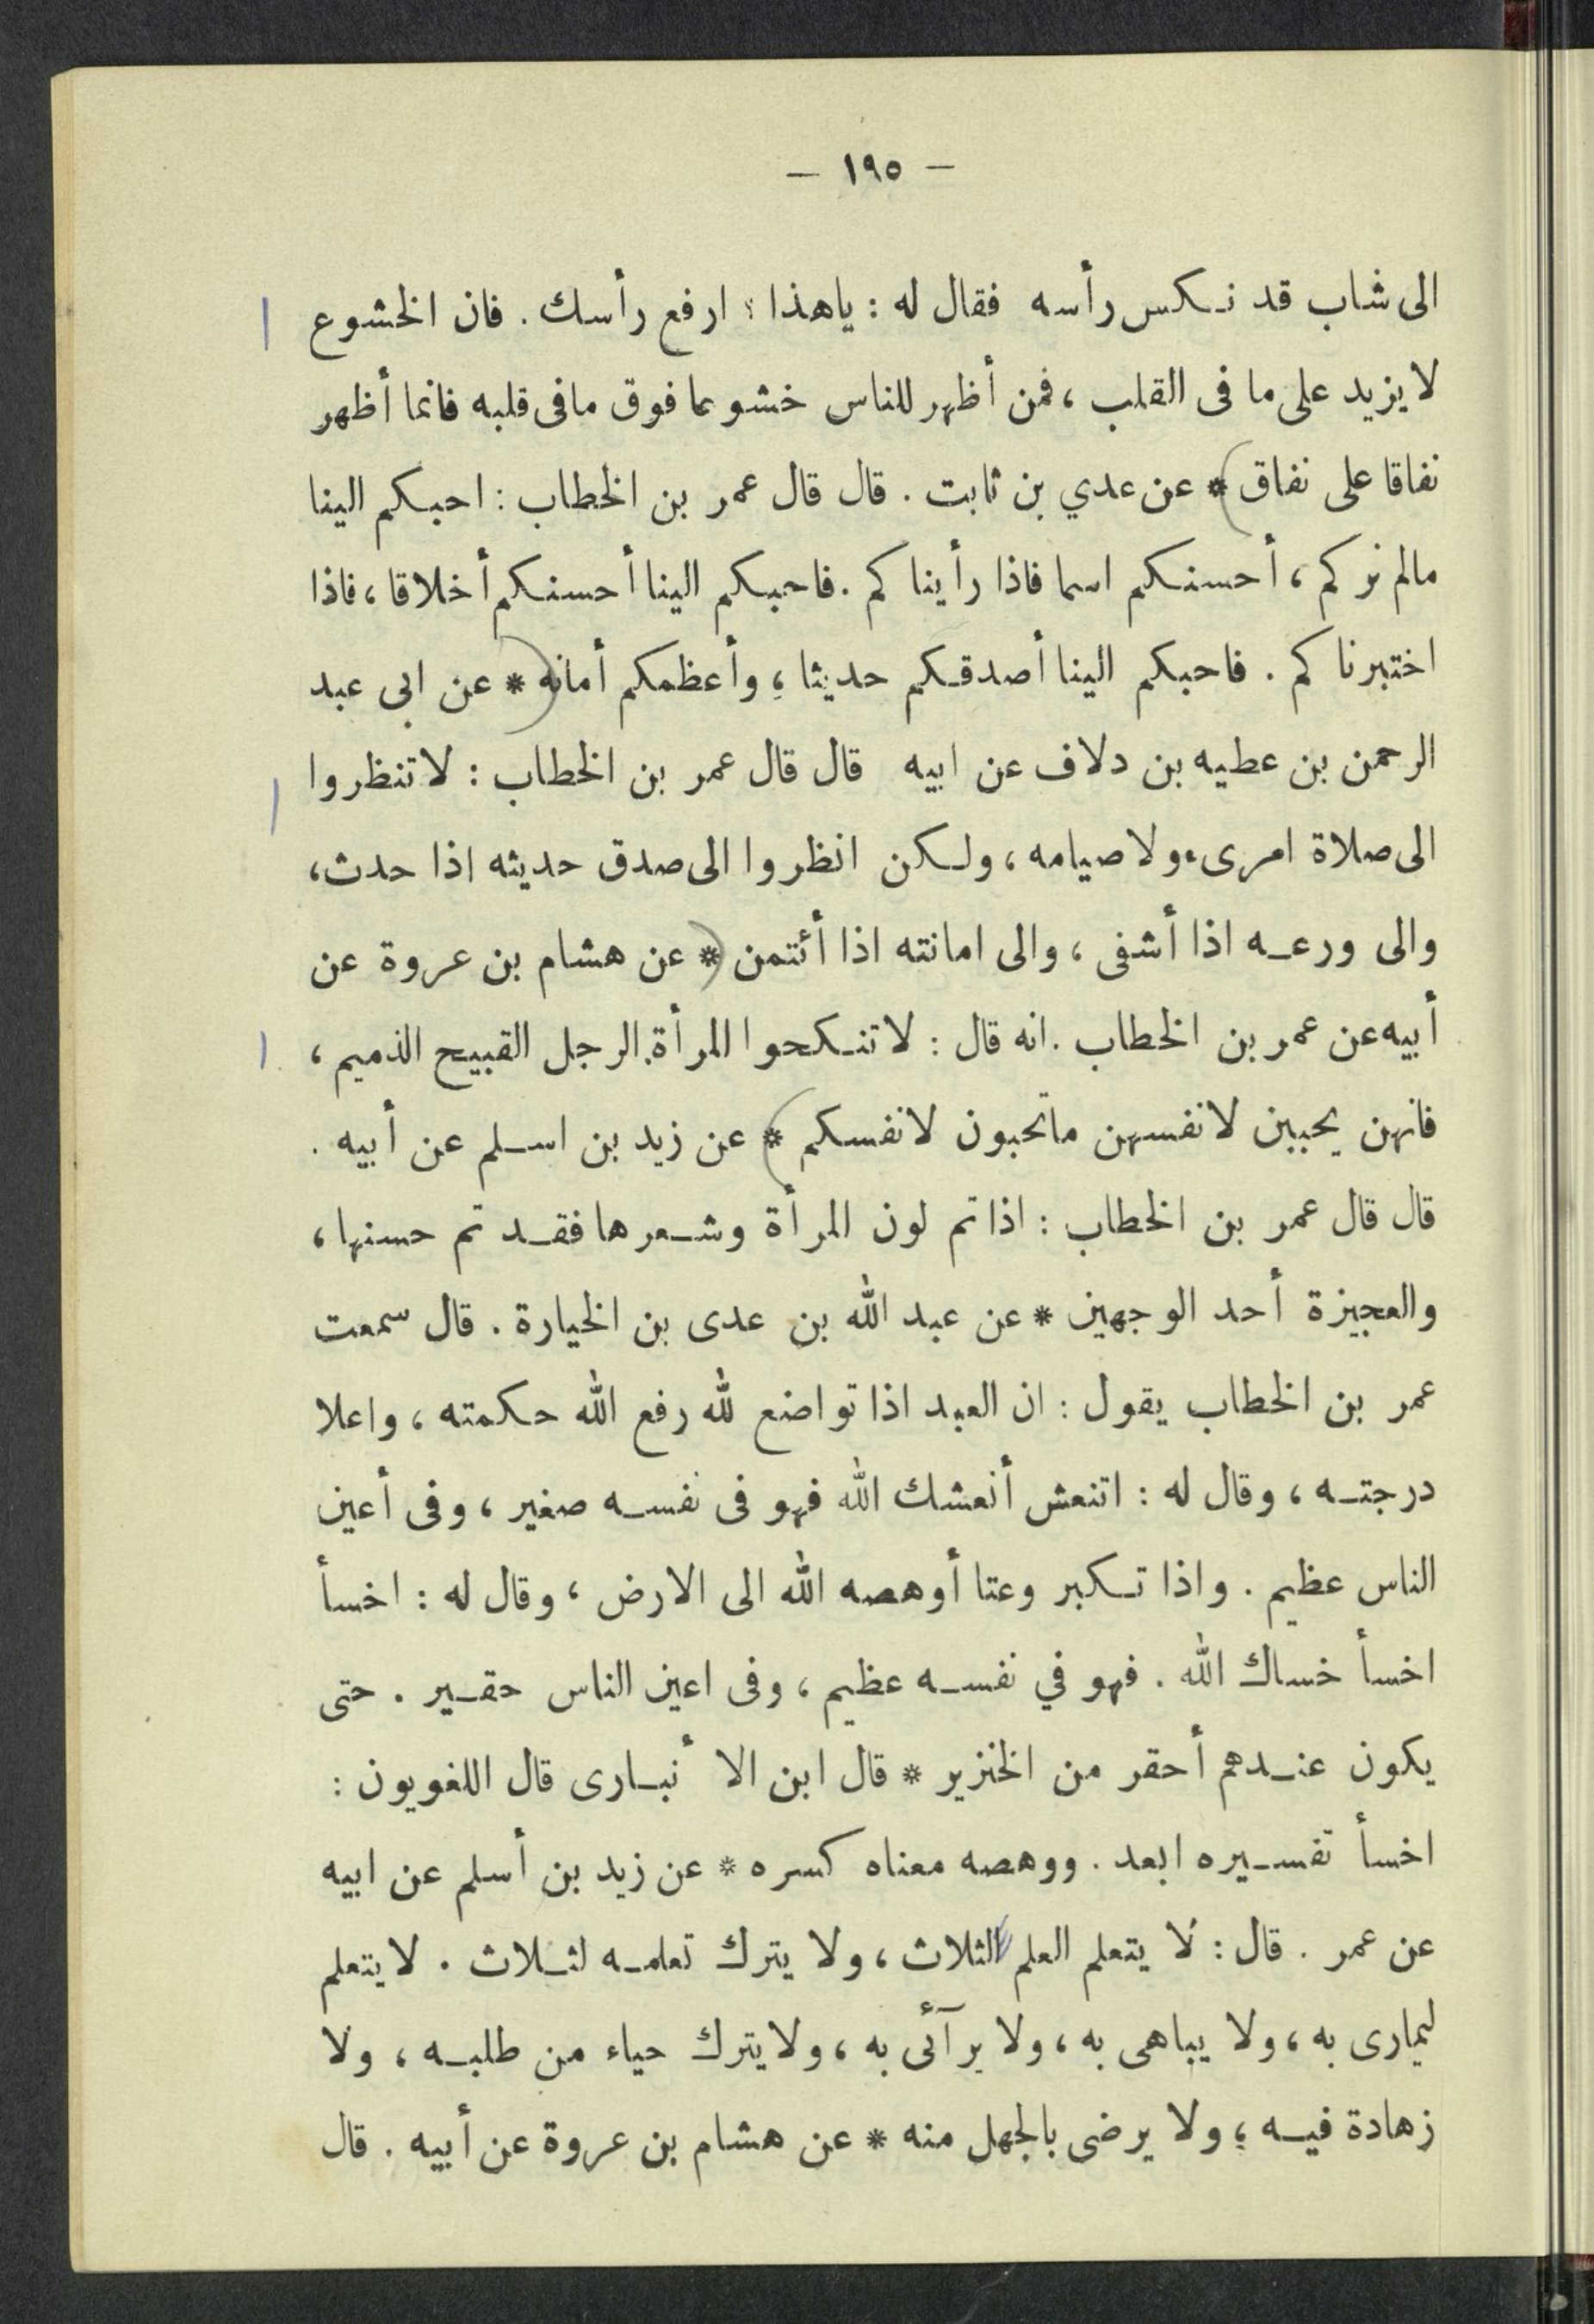 — ١٩٥ —
الى شاب قد نكس رأسه فقال له : ياهذا ؛ ارفع رأسك . فان الخشوع
لا يزيد على ما فى القلب ، فمن أظهر للناس خشوعا فوق مافى قلبه فانما أظهر
نفاقا على نفاق * عن عدي بن ثابت . قال قال عمر بن الخطاب : احبكم الينا
مالم نركم ، أحسنكم اسما فاذا رأيناكم . فاحبكم الينا أحسنكم أخلاقا ، فاذا
اختبرناكم . فاحبكم الينا أصدقكم حديثا ، وأعظمكم أمانه * عن ابى عبد
الرحمن بن عطيه بن دلاف عن ابيه قال قال عمر بن الخطاب : لا تنظروا
الى صلاة امرىء ولا صيامه ، ولكن انظروا الى صدق حديثه اذا حدث ،
والى ورعه اذا أشفى ، والى امانته اذا أئتمن * عن هشام بن عروة عن
أبيه عن عمر بن الخطاب . انه قال : لا تنكحوا المرأة الرجل القبيح الذميم ،
فانهن يحببن لانفسهن ماتحبون لانفسكم * عن زيد بن اسلم عن أبيه .
قال قال عمر بن الخطاب : اذا تم لون المرأة وشعرها فقد تم حسنها ،
والعجيزة أحد الوجهين * عن عبد الله بن عدى بن الخيارة . قال سمعت
عمر بن الخطاب يقول : ان العبد اذا تواضع لله رفع الله حكمته ، واعلا
درجته ، وقال له : اتنعش أنعشك الله فهو فى نفسه صغير ، وفى أعين
الناس عظيم . واذا تكبر وعتا أوهصه الله الى الارض ، وقال له : اخسأ
اخسأ خساك الله . فهو في نفسه عظيم ، وفى اعين الناس حقير . حتى
يكون عندهم أحقر من الخنزير * قال ابن الأنبارى قال اللغويون :
اخسأ تفسيره ابعد . ووهصه معناه كسره * عن زيد بن أسلم عن ابيه
عن عمر . قال : لا يتعلم العلم لثلاث ، ولا يترك تعلمه لثلاث . لا يتعلم
ليمارى به ، ولا يباهى به ، ولا يرآئى به ، ولا يترك حياء من طلبه ، ولا
زهادة فيه ، ولا يرضى بالجهل منه * عن هشام بن عروة عن أبيه . قال